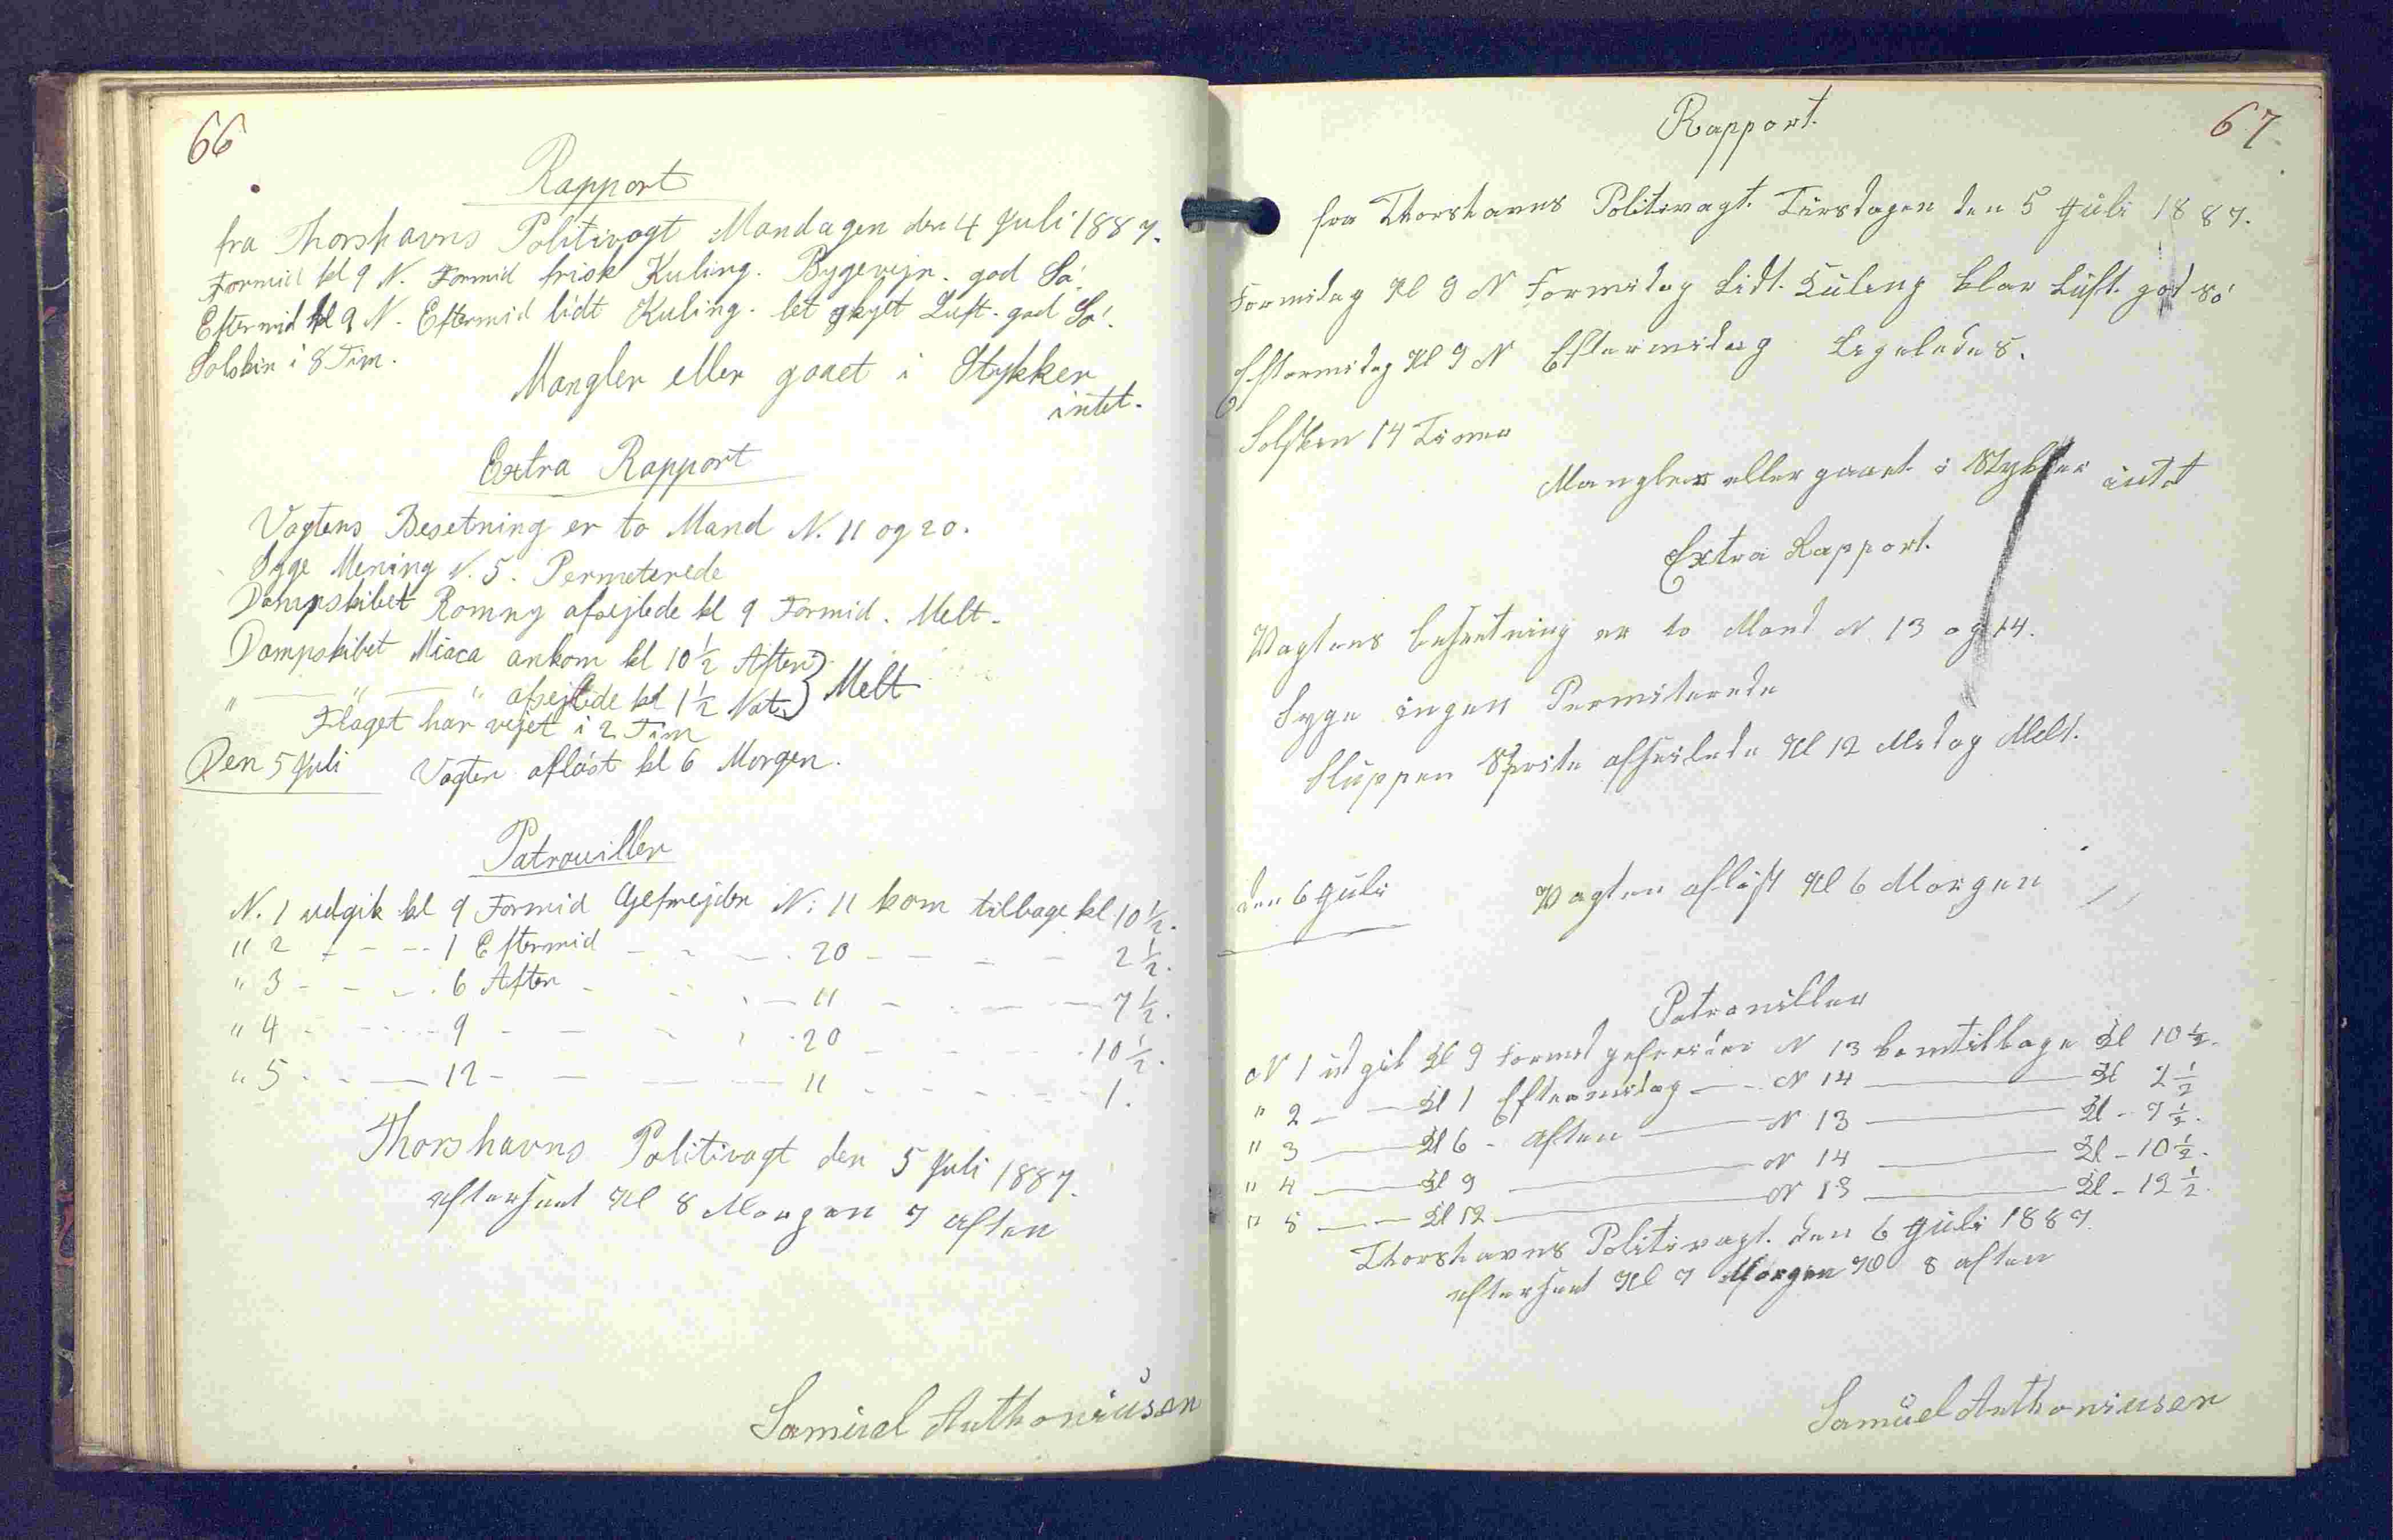 66
Rapport
fra Thorshavns Politivagt Mandagen den 4 Juli 1887.
Formid kl 9 N. Formid frisk Kuling. Bygevejr. god Sö.
Eftermid kl 9 N. Eftermid lidt Kuling. let skyet Luft. god Sö.
Solskin i 8 Tim.
Mangler eller gaaet i Stykker
intet.
Extra Rapport
Vagtens Besetning er to Mand N. 11 og 20.
Syge Mening N. 5. Permeterede
Dampskibet Romny afsejlede kl 9 Formid. Melt.
Dampskibet Miaca ankom kl 10½ Aften } Melt
" — " — " afsejlede kl 1½ Nat.
Flaget har vejet i 2 Tim
Den 5 Juli Vagten aflöst kl 6 Morgen.
Patrouiller
N. 1 udgik kl 9 Formid Gefrejder N. 11 kom tilbage kl 10½.
" 2 - - - 1 Eftermid - - - 20 - - - - 2½.
" 3 - - - 6 Aften - - - 11 - - - 7½.
" 4 - - - 9 - - - 20 - - - 10½.
" 5 - - - 12 - - - 11 - - - 1.
Thorshavns Politivagt den 5 Juli 1887.
efterseet Kl 8 Morgen 7 aften
Samuel Anthoniusen
67
Rapport.
fra Thorshavns Politivagt. Tirsdagen den 5 Juli 1887.
Formidag Kl 9 N Formidag Lidt Kuling klar Luft god sö
Eftermidag Kl 9 N Eftermidag Ligeledes.
Solskin 14 Timer
Mangler eller gaaet i Stykker intet
Extra Rapport.
Vagtens besætning er to Mand N 13 og 14.
Syge ingen Permiterede
Sluppen afseilede Kl 12 Midag Melt.
den 6 Juli Vagten aflöst Kl 6 Morgen
Patrouiller
N 1 ud gik Kl 9 Formid gefreider N 13 kom tilbage Kl 10½.
" 2 — — Kl 1 Eftermidag — N 14 — Kl 2½
" 3 — Kl 6 - aften — N 13 — Kl - 7½.
" 4 — Kl 9 — N 14 — Kl - 10½.
" 5 — — Kl 12 — N 13 — Kl - 12½.
Thorshavns Politivagt. den 6 Juli 1887.
efterseet Kl 7 Morgen Kl 8 aften
Samuel Anthoniusen